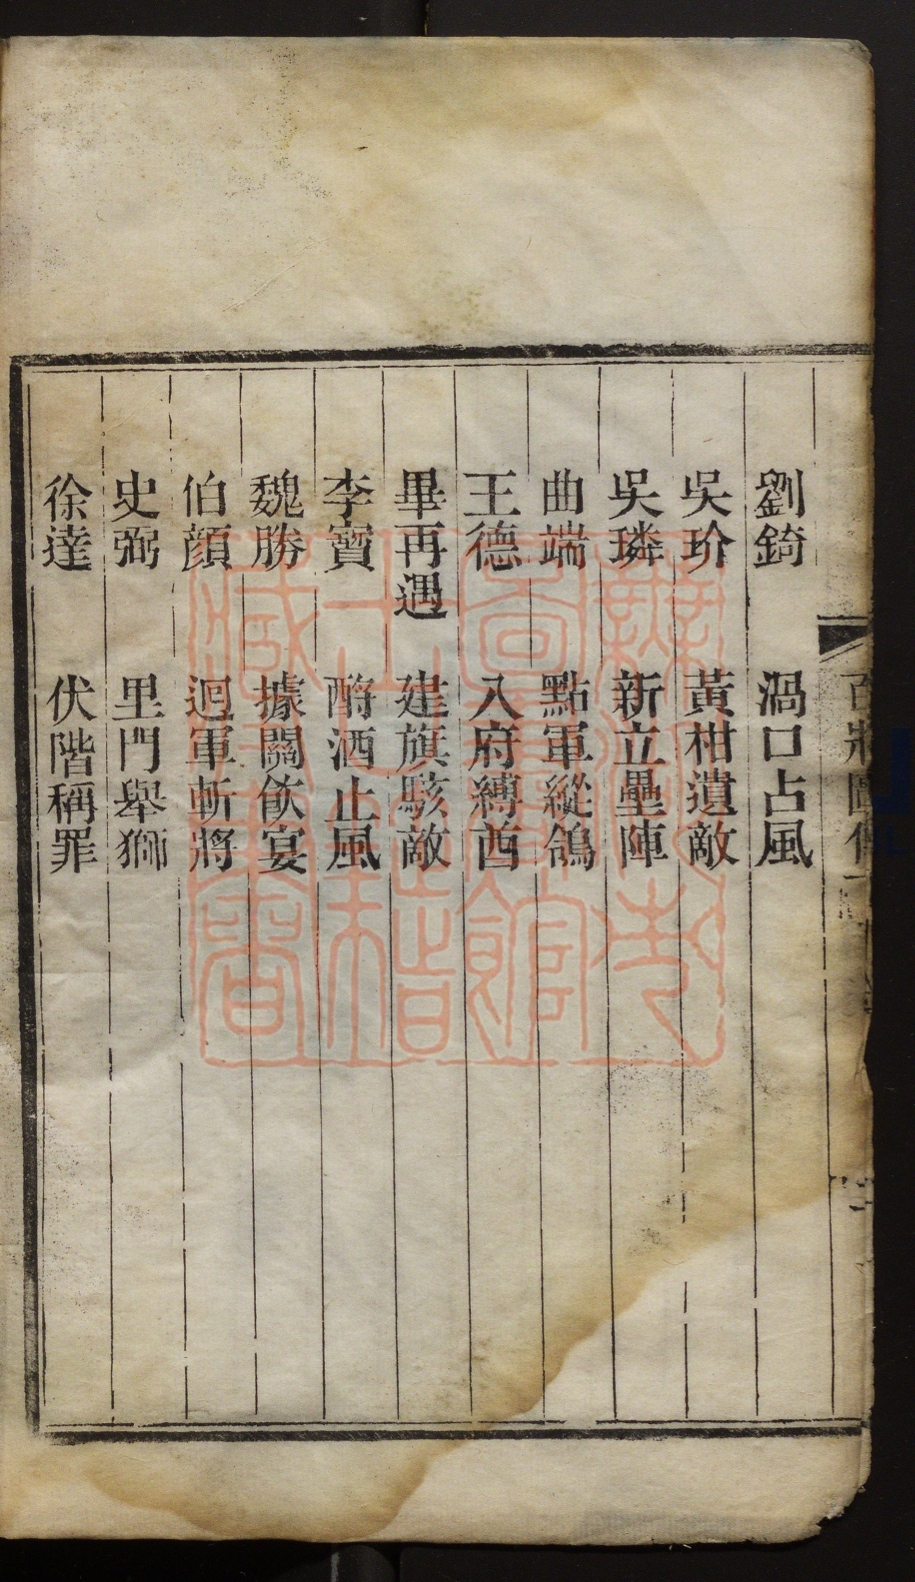 劉錡 渦口占風
吳玠 黃柑遺敵
吳璘 新立壘陣
曲端 點軍縱鴿
王德 入府縛酋
畢再遇 建旗駭敵
李寶 酹酒止風
魏勝 據關飮宴
伯顔 迴軍斬將
史弼 里門舉獅
徐達 伏階稱罪